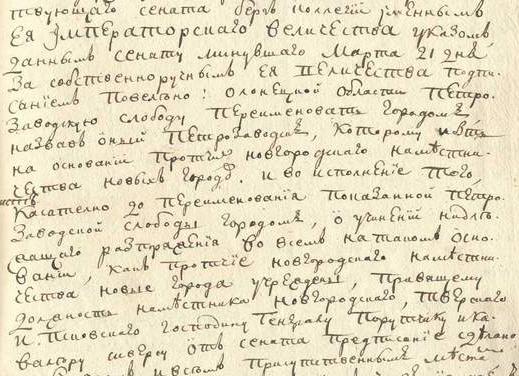 ствующаго сената бергъ коллегіи учиненнымъ
Ея Императорскаго величества указомъ
даннымъ сенату минувшаго Марта 21 дня
За собственноручнымъ Ея величества подпи-
саніемъ Повелѣно: Олонецкой области Петро-
Заводскую слободу Переименовать городомъ
назвавъ оный Петрозаводскъ, Которому и быть
на основаніи протчихъ новгородскаго намѣстни-
чества новыхъ городовъ. и во исполненіе того
Касателно до переименованія показанной Петро-
Заводской слободы городомъ, о учиненіи надлѣ-
жащаго разпоряженія во всемъ на такомъ осно-
ваніи, какъ протчіе новгородскаго намѣстни-
чества новые города учреждены, правящему
должность намѣстника новгородскаго, тверскаго
и Псковскаго господину Генералу Порутчику и ка-
валеру сиверсу отъ сената предписаніе здѣлано
и всѣмъ присутственнымъ мѣста